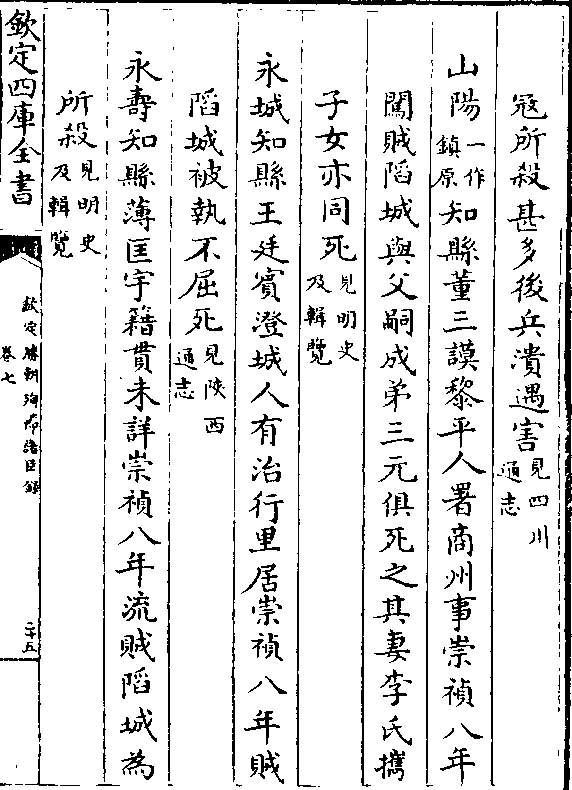 寇所殺甚多後兵潰遇害見四川通志
山陽一作鎮原知縣董三謨黎平人署商州事崇禎八年
闖賊陷城與父嗣成弟三元俱死之其妻李氏攜
子女亦同死見明史及輯覽
永城知縣王廷賓澄城人有治行里居崇禎八年賊
陷城被執不屈死見陜西通志
永壽知縣薄匡宇籍貫未詳崇禎八年流賊陷城為
所殺見明史及輯覽
欽定四庫全書
欽定勝朝殉節諸臣錄
卷七
二十五